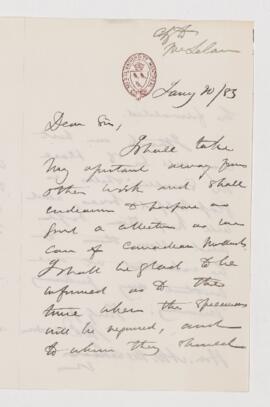 McLelan
Jany 20/83
Dear Sir,
I shall take
away from
other work and shall
endeavor to prepare as
good a collection as we
can of Canadian
I shall be glad to be
informed as to the
time when the specimens
will be required, and
to whom they should